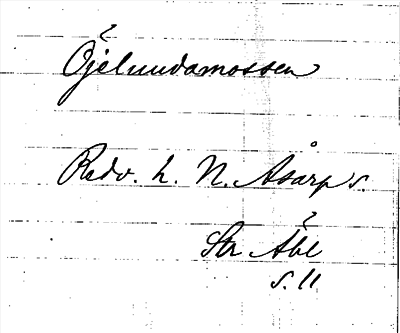 Öjelundamossen
Redv. h. N. Åsarp s.
Str Åbl
s. 11